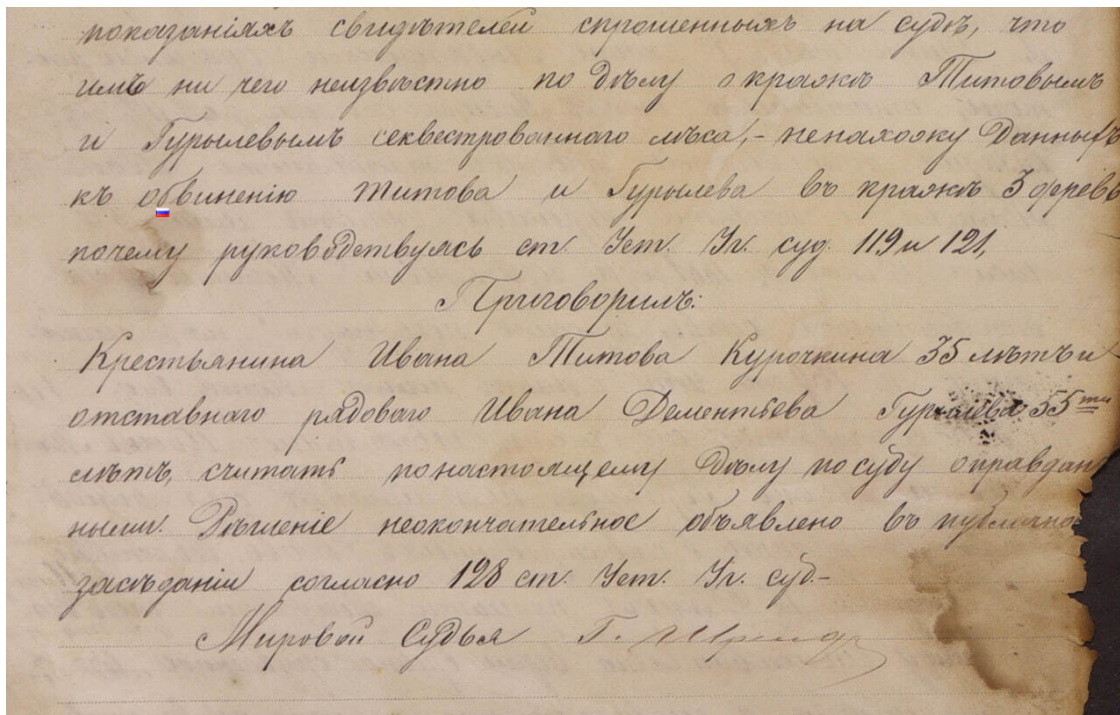 показаніяхъ свидѣтелей спрошенныхъ на судѣ, что
имъ ни чего неизвѣстно по дѣлу о кражѣ Титовымъ
и Гурылевымъ секвестрованнаго лѣса, - ненахожу данныхъ
къ обвиненію Титова и Гурылева въ кражѣ 3 дерев
почему руководствуясь ст. Уст. Уг. суд. 119 и 121,
Приговорилъ:
Крестьянина Ивана Титова Курочкина 35 лѣтъ и
отставнаго рядоваго Ивана Дементьева Гурылева 55ти
лѣтъ, считать по настоящему дѣлу по суду оправдан
ными. Рѣшеніе неокончательное объявлено въ публично
засѣданіи согласно 128 ст. Уст. Уг. суд. -
Мировой Судья Г.